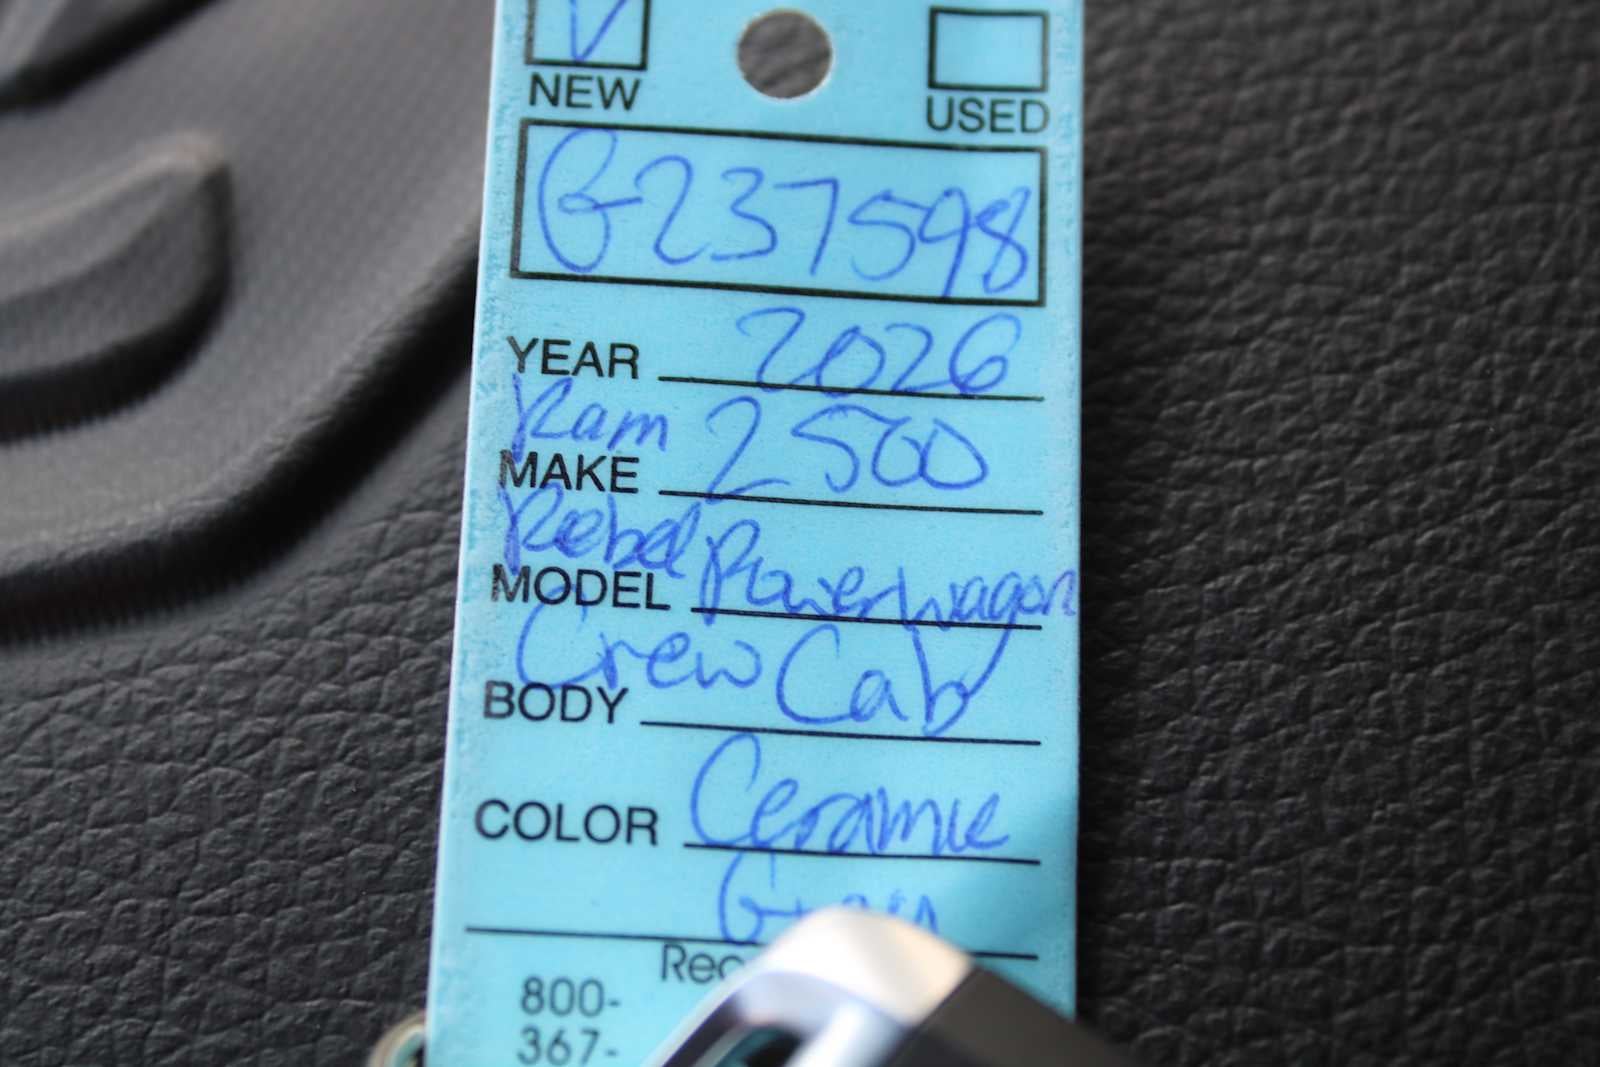 NEW USED
G237598
YEAR 2026
Ram 2500
MAKE
Rebel Power Wagon
MODEL
Crew Cab
BODY
COLOR Ceramic
800-
367-